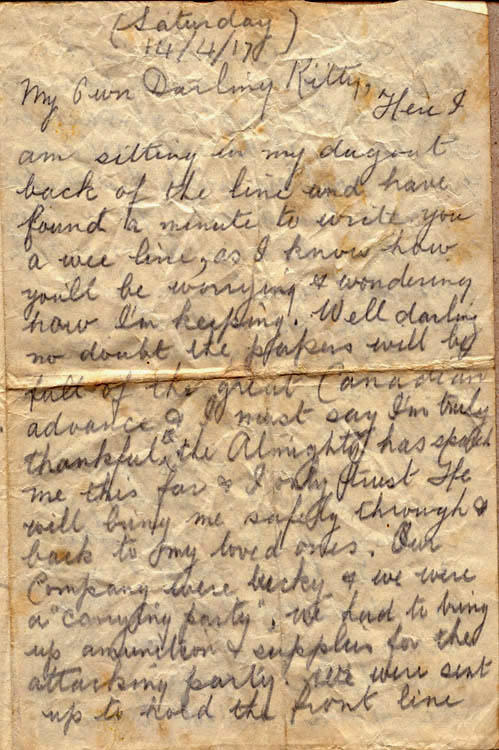 (Saturday)
14/4/17
My Own Darling Kitty,
Here I
am sitting in my dugout
back of the line and have
found a minute to write you
a wee line, as I know how
you'll be worrying & wondering
how I'm keeping. Well darling
no doubt the papers will be
full of the great Canadian
advance & I must say I'm truly
thankful to the Almighty has spared
me this far & I only trust He
will bring me safely through &
back to my loved ones. Our
Company were lucky & we were
a "carrying party", we had to bring
up amunition & supplies for the
attacking party. We were sent
up to hold the front line